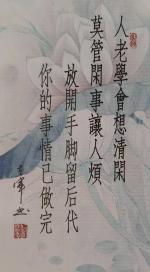 人老學會想清閑
莫管閑事讓人煩
放開手脚留后代
你的事情已做完